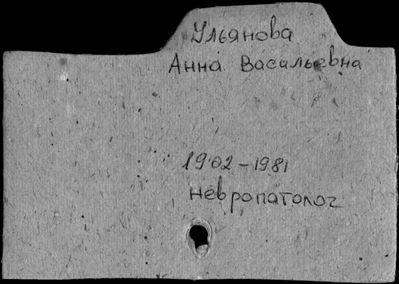 Ульянова
Анна Васильевна
1902-1981
невропатолог